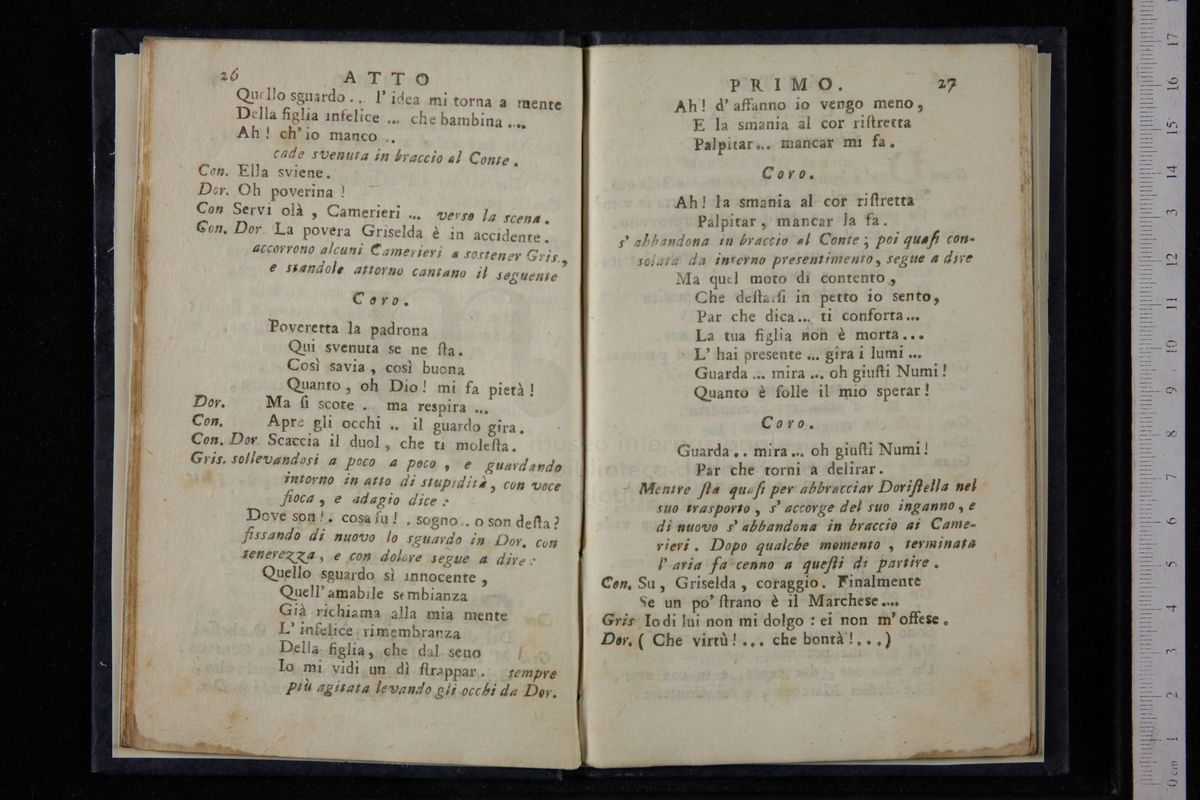 26 ATTO
Quello sguardo .. l' idea mi torna a mente
Della figlia infelice ... che bambina ....
Ah! ch' io manco ..
cade svenuta in braccio al Conte.
Con. Ella sviene.
Dor. Oh poverina!
Con Servi olà, Camerieri ... verso la scena.
Con. Dor. La povera Griselda è in accidente.
accorrono alcuni Camerieri a sostener Gris.,
e standole attorno cantano il seguente
Coro.
Poveretta la padrona
Qui svenuta se ne ſta.
Così savia, così buona
Quanto, oh Dio! mi fa pietà!
Dor. Ma ſi scote . ma respira ...
Con. Apre gli occhi .. il guardo gira.
Con. Dor. Scaccia il duol, che ti moleſta.
Gris. sollevandosi a poco a poco, e guardando
intorno in atto di stupidità, con voce
fioca, e adagio dice:
Dove son! . cosa fu! . sogno .. o son deſta?
fissando di nuovo lo sguardo in Dor. con
tenerezza, e con dolore segue a dire:
Quello sguardo sì innocente,
Quell' amabile sembianza
Già richiama alla mia mente
L' infelice rimembranza
Della figlia, che dal seno
Io mi vidi un dì ſtrappar. sempre
più agitata levando gli occhi da Dor.
PRIMO. 27
Ah! d' affanno io vengo meno,
E la smania al cor riſtretta
Palpitar... mancar mi fa.
Coro.
Ah! la smania al cor riſtretta
Palpitar, mancar la fa.
s' abbandona in braccio al Conte; poi quaſi con-
solata da interno presentimento, segue a dire
Ma quel moto di contento,
Che deſtarſi in petto io sento,
Par che dica... ti conforta...
La tua figlia non è morta...
L' hai presente ... gira i lumi ...
Guarda ... mira ... oh giuſti Numi!
Quanto è folle il mio sperar!
Coro.
Guarda .. mira ... oh giuſti Numi!
Par che torni a delirar.
Mentre ſta quaſi per abbracciar Doriſtella nel
suo trasporto, s' accorge del suo inganno, e
di nuovo s' abbandona in braccio ai Came-
rieri. Dopo qualche momento, terminata
l' aria fa cenno a queſti di partire.
Con. Su, Griselda, coraggio. Finalmente
Se un po' ſtrano è il Marchese....
Gris Io di lui non mi dolgo: ei non m' offese.
Dor. ( Che virtù! ... che bontà! ...)
0 cm 1 2 3 4 5 6 7 8 9 10 11 12 13 14 15 16 17